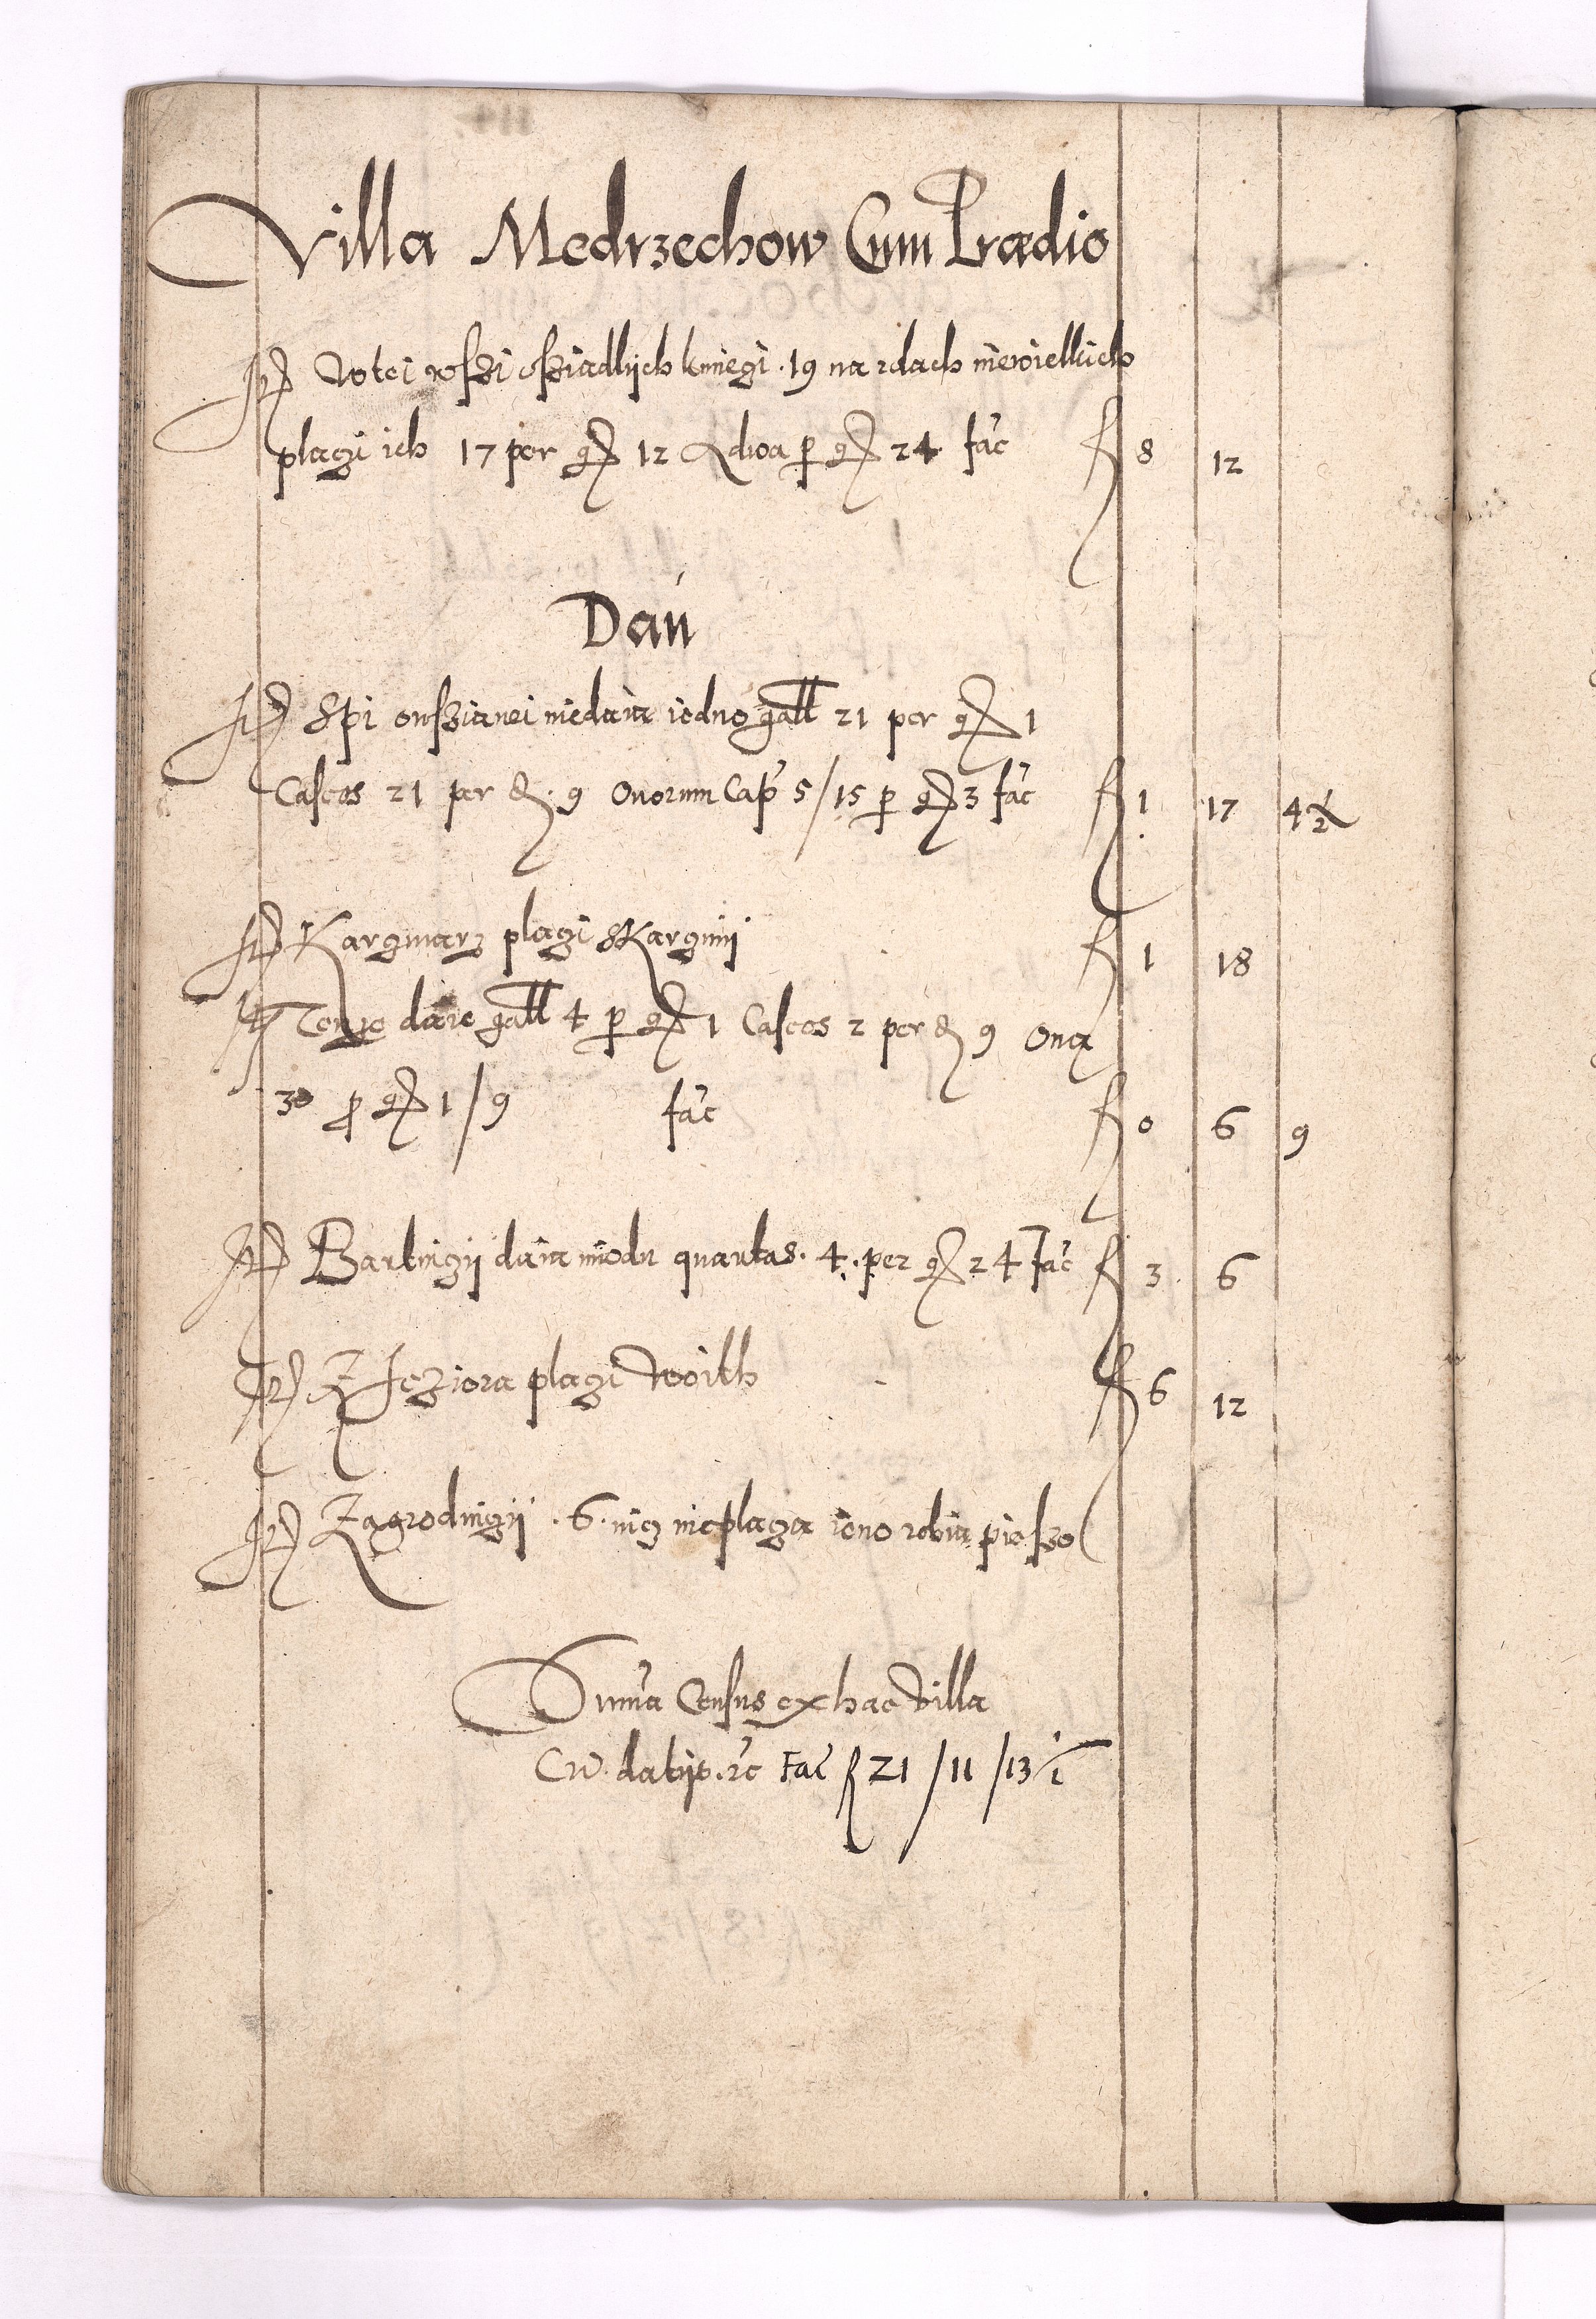 Villa Medrzechow Cum Prædio
Itẽ Wtei wſszi oſziadlÿch kmiegi · 19 na rolach niewiellkich
placzi ich 17 per gr 12 A dwa p gr 24 fac̃ fl 8 12
Dań
Itẽ Spi owſzianei niedaia iedno gall 21 per gr 1
Caſeos 21 per d. 9 Ovorum Cap 5/15 p gr 3 fac̃ fl 1 17 4½
Itẽ Karczmarz placzi S Karczmÿ fl 1 18
Itẽ Tenze daie gall 4 p gr 1 Caſeos 2 per d 9 Oua
30 p gr 1/9 fac̃ fl 0 6 9
Itẽ Bartniczÿ daia miodu quartas · 4 · per gr 24 fac̃ fl 3 6
Itẽ Z Jeziora placzi Woith fl 6 12
Itẽ Zagrodniczÿ · 6 · nicz nieplacza ieno robia pieſzo
Sum̃a Cenſus ex hac Villa
Cũ datijs · ꝛc fac̃ fl 21/11/13½